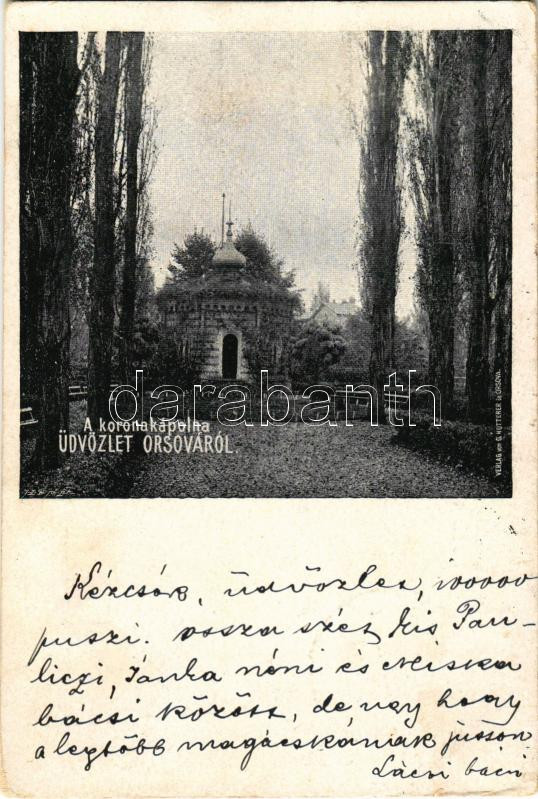 darabanth
A koronakápolna
ÜDVÖZLET ORSOVÁRÓL.
VERLAG von G. HUTTERER in ORSOVA.
Kézcsók, üdvözlet, 100000
puszi. ossza szét kis Pau-
liczi, Jánka néni és Miska
bácsi között, de úgy hogy
a legtöbb magácskának jusson
Lácsi bácsi